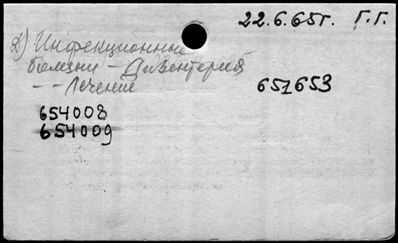 22.6.65г. Г.Г.
2) Инфекционные
болезни - Дизентерия
- - Лечение 651653
654008
654009